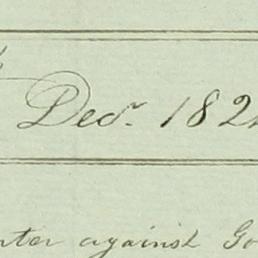 Decr. 182
against Go